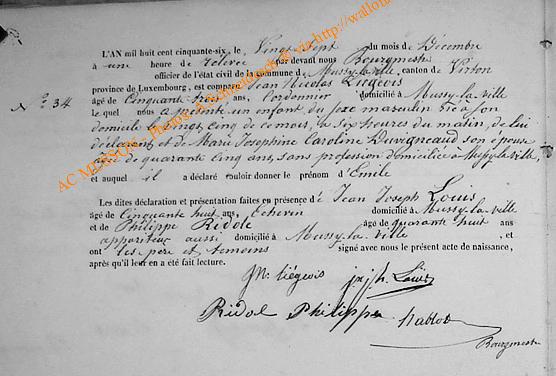 L'AN mil huit cent cinquante-six, le Vingt Sept du mois de Décembre
à une heure de relevée par devant nous Bourgmestre
officier de l'état civil de la commune de Mussy-la-ville canton de Virton
province de Luxembourg, est comparu Jean Nicolas Liégeois
N° 34 âgé de Cinquante trois ans, Cordonnier domicilié à Mussy-la-ville
Le quel nous a présenté un enfant du sexe masculin né à son
domicile le vingt cinq de ce mois, à six heures du matin, de lui
déclarant et de Marie Josephine Caroline Duvigneaud son épouse
agée de quarante cinq ans, sans profession domiciliée à Mussy-la-ville,
et auquel il a déclaré vouloir donner le prénom d'Emile
Les dites déclaration et présentation faites en présence de Jean Joseph Louis
âgé de Cinquante huit ans, Echevin domicilié à Mussy-la-ville
et de Philippe Ridole âgé de quarante huit ans
appariteur aussi domicilié à Mussy-la-ville, et
ont les père et temoins signé avec nous le présent acte de naissance,
après qu'il leur en a été fait lecture.
JN. Liégeois jos. h. Louis
Ridol Philippe Nablot
Bourgmestre
AC MUSSON - Photos: AC http://wallon